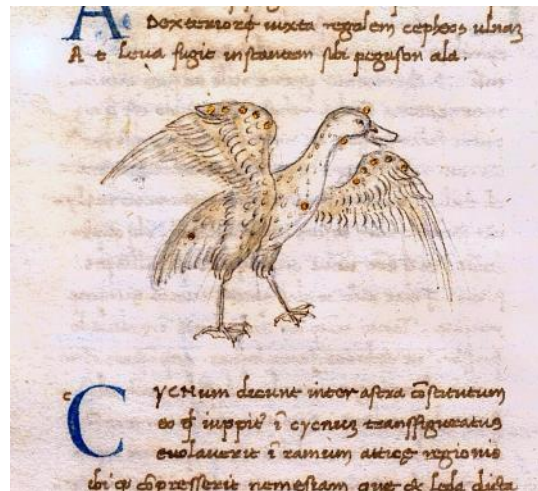 A
Dexteriorē iuxta regalem cepheos ulnaʒ
A t leva fugit instantem sibi pegason ala.
c C YCNum dicunt inter astra cōstitutum
eo ꝙ iuppiṫ ī cycnuʒ transfiguratus
euolauerit ī ramum attice regionis
ibi ꝙ cōpresserit nemesiam que & leda dicta